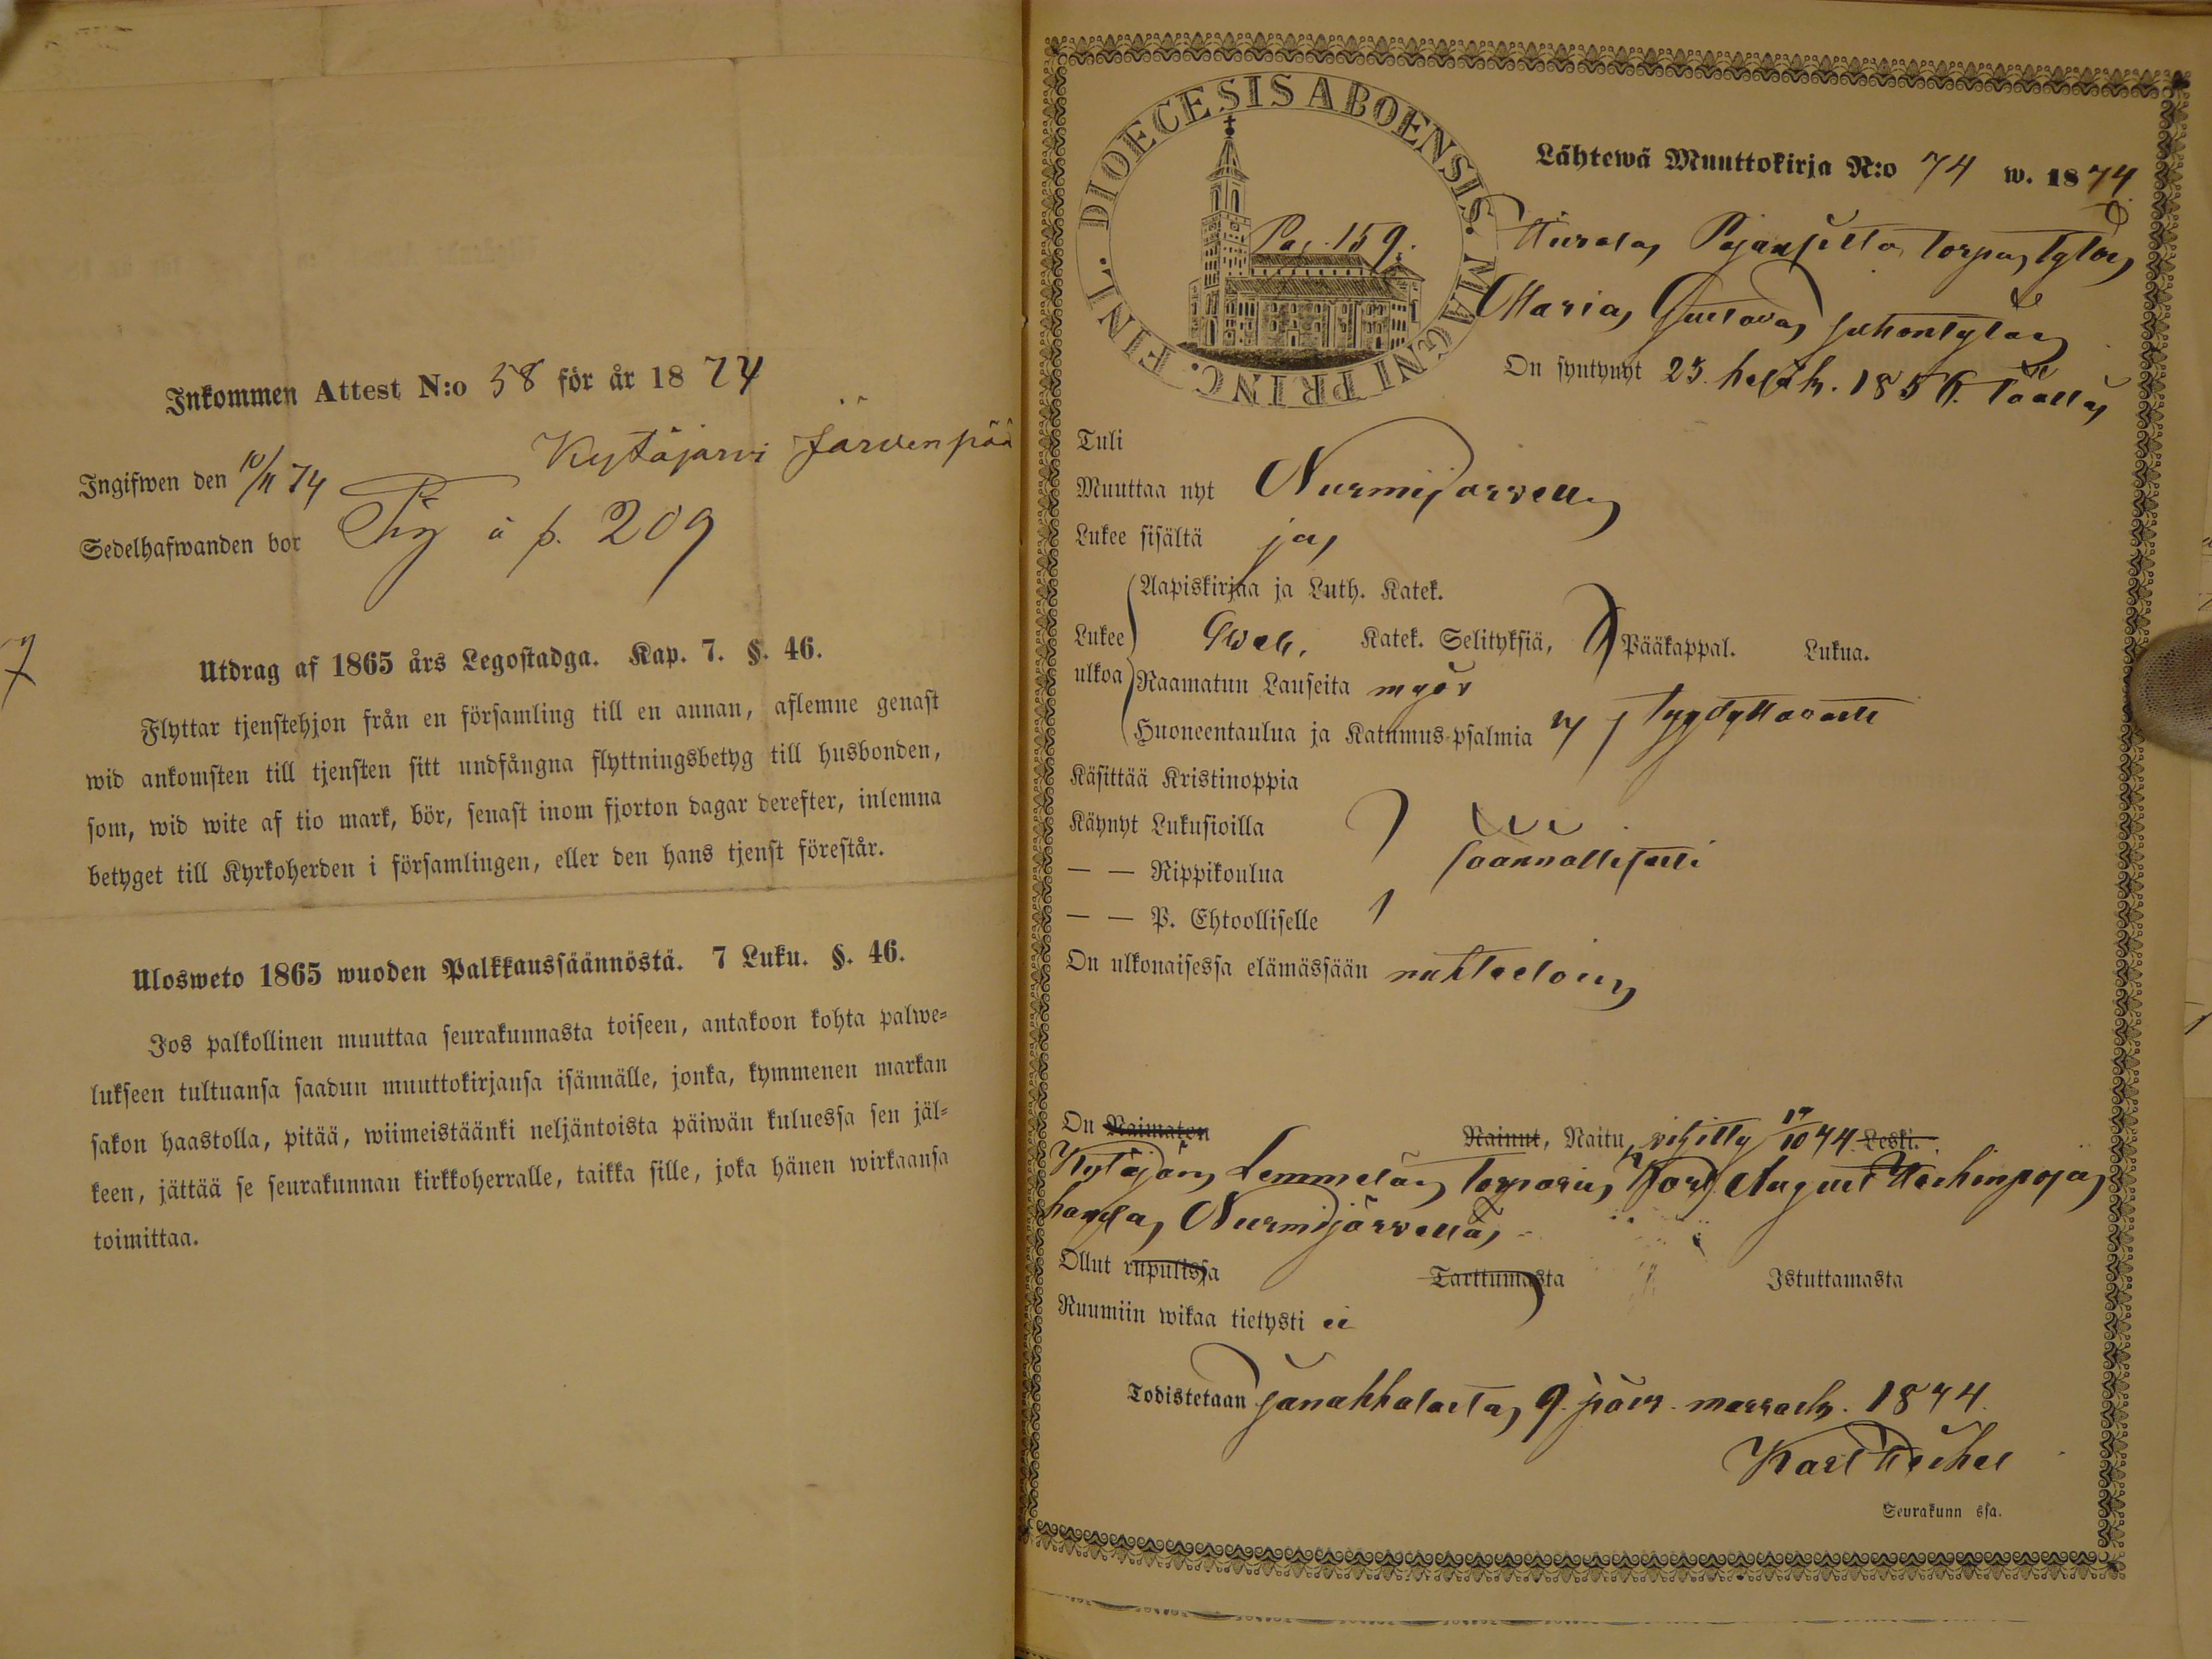 Inkommen Attest N:o 58 för år 1874
Kytäjärvi Järvenpää
Ingifwen den 10/11 74
Sedelhafwanden bor Pig å p. 209
Utdrag af 1865 års Legostadga. Kap. 7. §. 46.
Flyttar tjenstehjon från en församling till en annan, aflemne genast
wid ankomsten till tjensten sitt undfångna flyttningsbetyg till husbonden,
som, wid wite af tio mark, bör, senast inom fjorton dagar derefter, inlemna
betyget till Kyrkoherden i församlingen, eller den hans tjenst förestår.
Ulosweto 1865 wuoden Palkkaussäännöstä. 7 Luku. §. 46.
Jos palkollinen muuttaa seurakunnasta toiseen, antakoon kohta palwe-
lukseen tultuansa saadun muuttokirjansa isännälle, jonka, kymmenen markan
sakon haastolla, pitää, wiimeistäänki neljäntoista päiwän kuluessa sen jäl-
keen, jättää se seurakunnan kirkkoherralle, taikka sille, joka hänen wirkaansa
toimittaa.
DIOECESIS ABOENSIS. MAGNI PRINC. FINL.
Pag. 159.
Lähtewä Muuttokirja N:o 74 w. 1874
torpan tytär
Maria Gustava Juhontytär
On syntynyt 25. 185 täällä
Tuli
Muuttaa nyt Nurmijärvelle
Lukee sisältä ja
Aapiskirjaa ja Luth. Katek.
Lukee ulkoa Katek. Selityksiä, Pääkappal. Lukua.
Raamatun Lauseita myös
Huoneentaulua ja Katumus-psalmia tyydyttävästi
Käsittää Kristinoppia
Käynyt Lukusioilla
— — Rippikoulua säännöllisesti
— — P. Ehtoolliselle
On ulkonaisessa elämässään nuhteetoin
On Naimaton Nainut, Naitu, vihitty 74 Leski.
Kytäjän Lemmelän torparin Karl August
kanssa Nurmijärvellä
Ollut rupulissa Tarttumasta Istuttamasta
Ruumiin wikaa tietysti ei
Todistetaan Janakkalasta 9. päiv. marrask. 1874.
Karl
Seurakunn ssa.